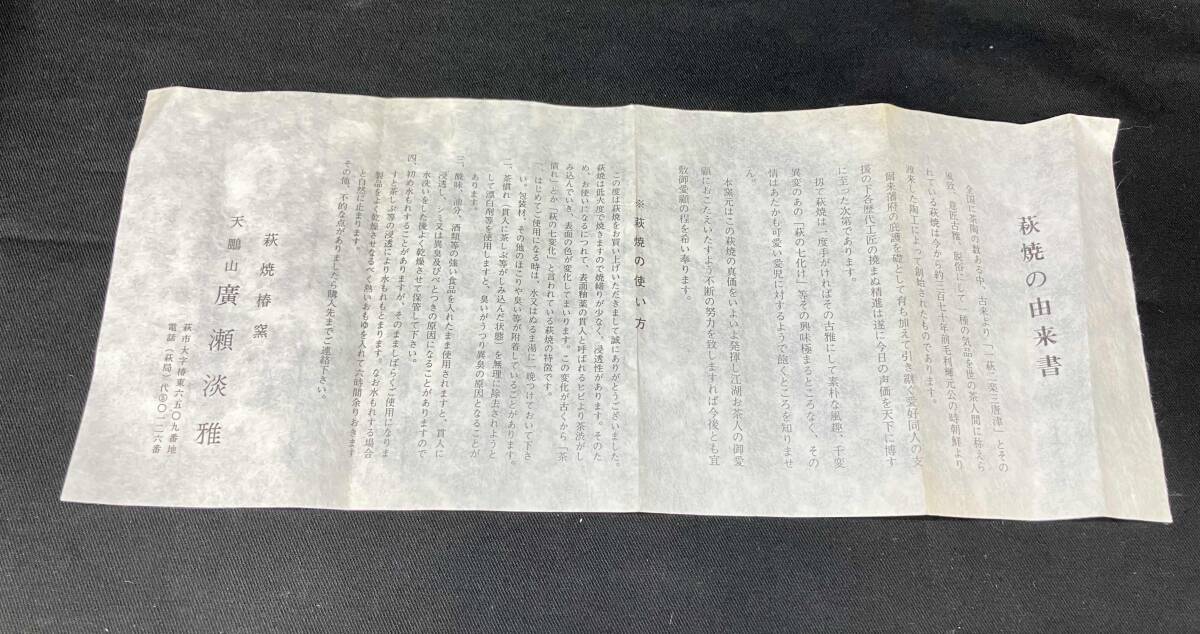 萩焼の由来書
全国に茶陶の数ある中、古来より「一萩二楽三唐津」とその
風致、意匠古雅、脱俗にして一種の気品を世の茶人間に称えら
れている萩焼は今から約三百七十年前毛利輝元公の時朝鮮より
渡来した陶工によって創始されたものであります。
爾来藩府の庇護を礎として育ち加えて引き継ぐ愛好同人の支
援の下各歴代工匠の撓まぬ精進は遂に今日の声価を天下に博す
に至った次第であります。
扨て萩焼は一度手がければその古雅にして素朴な風趣、千変
異変のあの「萩の七化け」等その興味極まるところなく、その
情はあたかも可愛い愛児に対するようで飽くところを知りませ
ん。
本窯元はこの萩焼の真価をいよいよ発揮し江湖お茶人の御愛
顧におこたえいたすよう不断の努力を致しますれば今後とも宜
敷御愛顧の程を希い奉ります。
※萩焼の使い方
この度は萩焼をお買い上げいただきまして誠にありがとうございました。
萩焼は低火度で焼きますので焼締りが少なく、浸透性があります。そのた
め、お使いになるにつれて、表面釉薬の貫人と呼ばれるヒビより茶渋がし
み込んでいき、表面の色が変化してまいります。この変化が古くから「茶
慣れ」とか「萩の七変化」と言われている萩焼の特徴です。
一、はじめてご使用になる時は、水又はぬるま湯に一晩つけておいて下さ
い。包装材、その他のほこりや臭い等が附着していることがあります。
二、茶慣れ(貫人に茶しぶ等がしみ込んだ状態)を無理に除去されようと
して漂白剤等を使用しますと、臭いがうつり異臭の原因となることが
あります。
三、酸味、油分、酒類等の強い食品を入れたまま使用されますと、貫人に
浸透し、シミ又は異臭及びべとつきの原因になることがありますので
水洗いをした後よく乾燥させて保管して下さい。
四、初め水もれすることがありますが、そのまましばらくご使用になりま
すと茶しぶ等の浸透により水もれもとまります。なお水もれする場合
製品をよく乾燥させなるべく熱いおもゆを入れて六時間余りおきます
と自然に止まります。
その他、不的な点がありましたら購入先までご連絡下さい。
萩焼椿窯
天鵬山 廣瀬淡雅
萩市大字椿東六五〇九番地
電話(萩局)代②〇一二六番